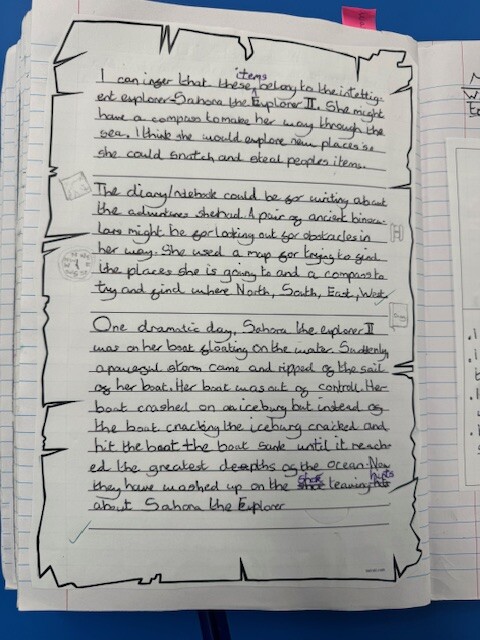 items
I can infer that these belong to the intellig-
ent explorer-Sahora the Explorer II. She might
have a compass to make her way through the
sea. I think she would explore new places so
she could snatch and steal peoples items.
The diary/notebook could be for writing about
the adventures she had. A pair of ancient binocu-
lars might be for looking out for obstacles in
her way. She used a map for trying to find
the places she is going to and a compass to
try and find where North, South, East, West.
One dramatic day, Sahora the explorer II
was on her boat floating on the water. Suddenly,
a powerful storm came and ripped of the sail
of her boat. Her boat was out of controll. Her
boat crashed on an iceburg but instead of
the boat cracking the iceburg cracked and
hit the boat. the boat sank until it reach-
ed the greatest deepths of the ocean. Now
they have washed up on the shore leaving hints
about Sahora the Explorer